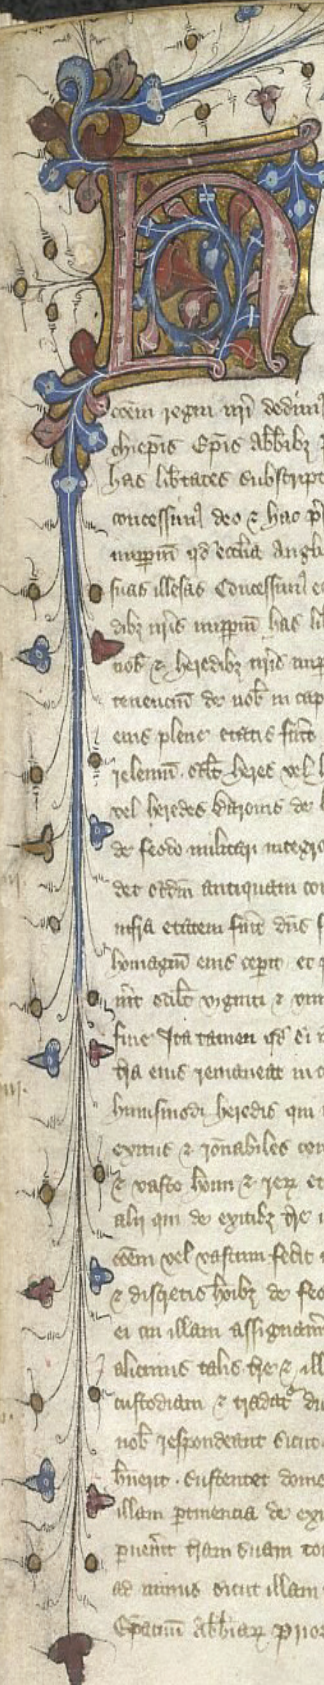 ccem regni nri dedim
chiepis Epis Abbibz
has libtates subscript
concessim deo & hac p
imppm qd ecclia Angli
suas illesas Concessim e
dibz nris imppm has li
nob & heredibz nris imp
tenencm de nob in cap
eius plene etatis fuit
releum. scilt heres vel h
vel heredes Baronis de
de feodo militari integro
det scdm antiquam con
infra etatem fuit dns
homagm eius cepit et
nit scilt viginti & vn
fine Ita tamen qd si
tra eius remaneat in c
huiusmodi heredis qui
exitus & ronabiles con
& vasto homm & rerz et
alii qui de exitibz tre
ccem vel vastum fecit
& discretis hoibz de feo
ei cui illam assignam
alicuius talis tre & ill
custodiam & tradat
nob respondeant sicut
huerit. Sustentet domo
illam ptinencia de exi
puenit tram suam
ad minus sicut illam
Epatuu Abbiarz Prior